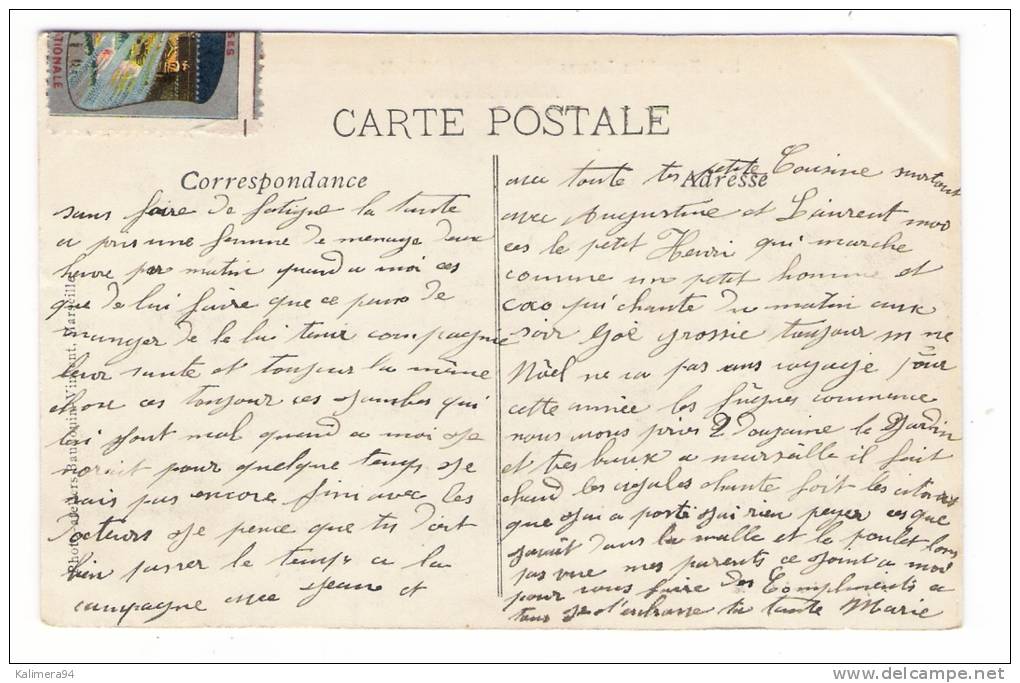 SES
TIONALE
CARTE POSTALE
Correspondance
Adresse
sans faire de fatigue la tante
a pris une femme de menage deux
heure par matin quand a moi ces
que de lui faire que ce peux de
manger de le lui tenir compagnie
leur sante et toujour la même
chose ces toujour ces jambes qui
lui font mal quand a moi je
pour quelque temps je
nais pas encore fini avec les
docteurs je pence que tu doit
bien passer le temps a la
campagne avec Jean et
avec toute tes petite Cousine surtout
avec Augustine et Laurent
ces le petit Henri qui marche
comme un petit homme et
coco qui chante du matin aux
soir Goë grossie toujour
Nöel ne va pas voyage pour
cette année les figues commence
nous nous pris 2 douzaine le Jardin
et tres beaux a marseille il fait
chaud les cigales chante
que j'ai a porté j'ai rien payer ces que
savait dans la malle et le poulet lon
pas vue mes parents ce joint a moi
pour vous faire des Compliments a
tous je t'enbrasse ta tante Marie
Photo ateliers Baudouin Vincent, Marseille
Kalimera94
delcampe.net